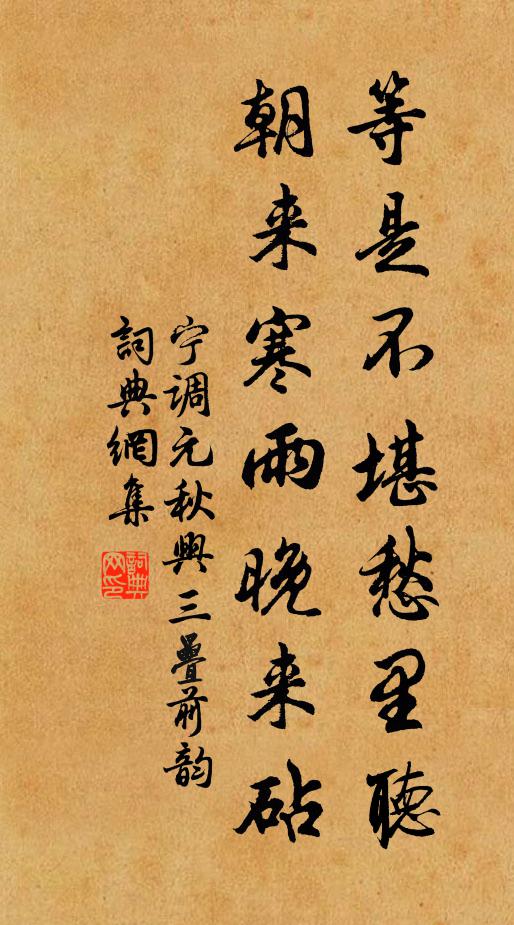 等是不堪愁里聽
朝来寒雨晚来砧
宁调元秋興三疊前韵
詞典網集
詞典网印